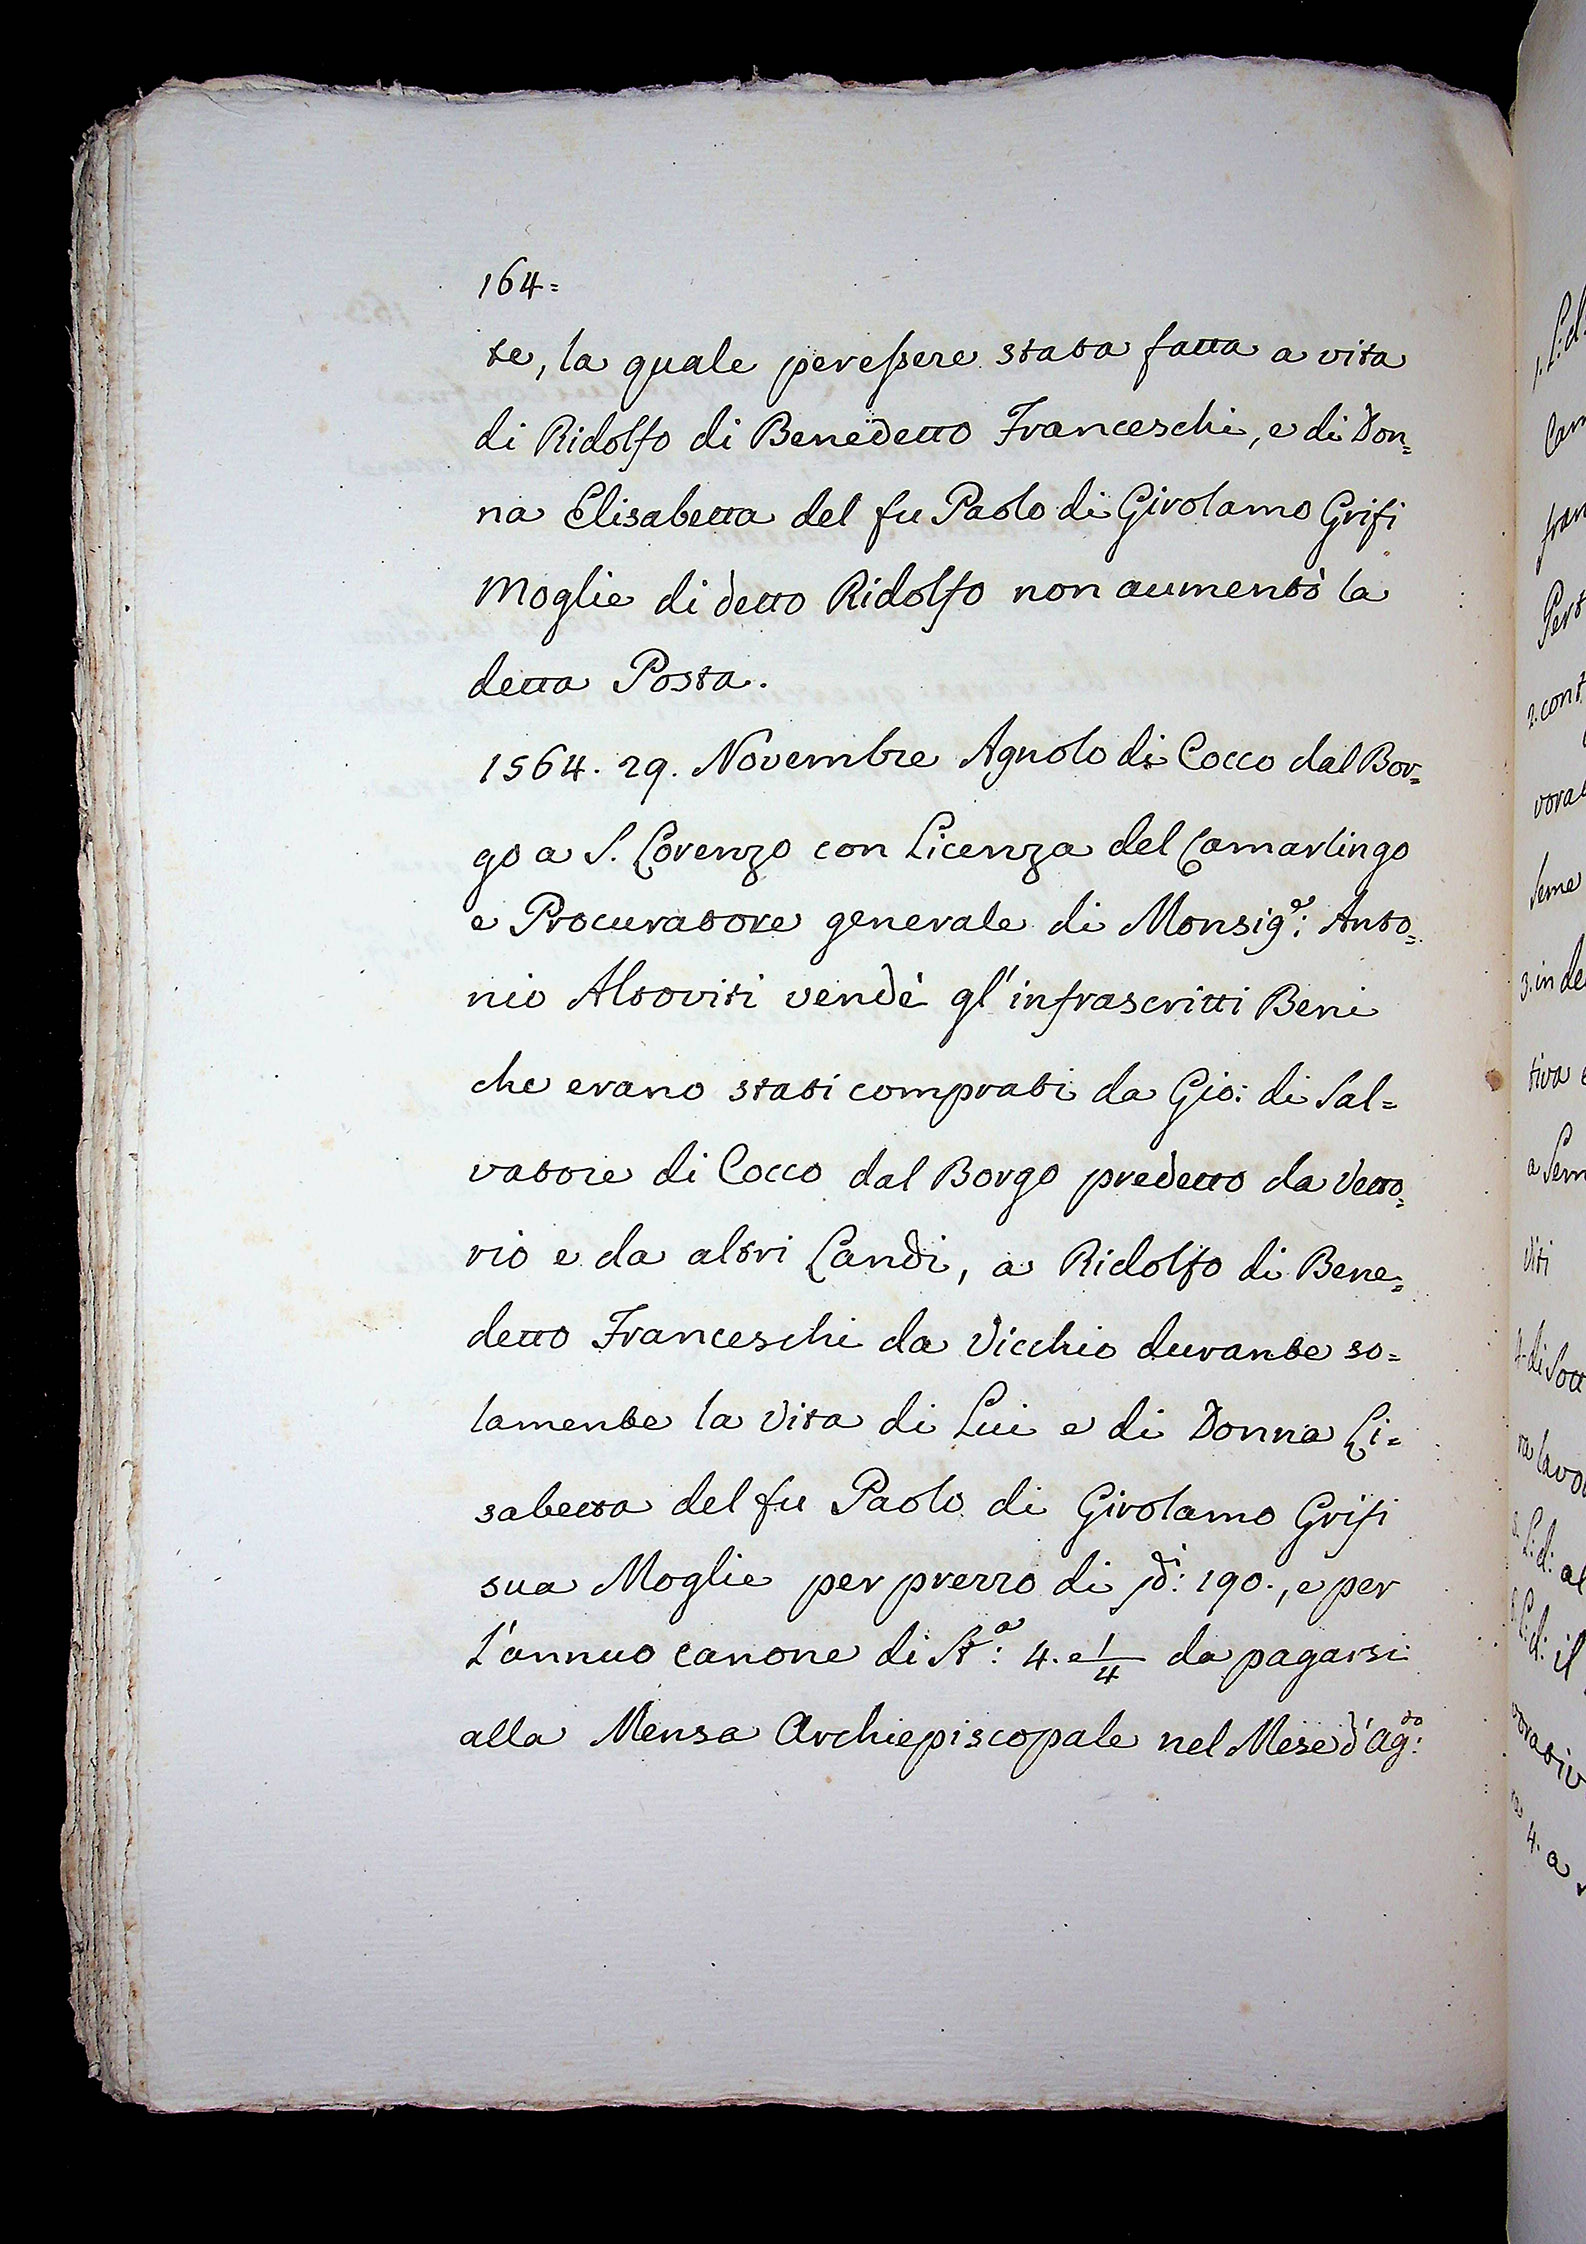 164=
te, la quale per essere stata fatta a vita
di Ridolfo di Benedetto Franceschi, e di Don=
na Elisabetta del fu Paolo di Girolamo Grifi
Moglie di detto Ridolfo non aumentò la
detta Posta.
1564. 29. Novembre Agnolo di Cocco dal Bor=
go a S. Lorenzo con Licenza del Camarlingo
e Procuratore generale di Monsig.e: Anto=
nio Altoviti vendè gl'infrascritti Beni
che erano stati comprati da Gio: di Sal=
vatore di Cocco dal Borgo predetto da Vetto=
rio e da altri Landi, a Ridolfo di Bene=
detto Franceschi da Vicchio durante so=
lamente la Vita di Lui e di Donna Li=
sabetta del fu Paolo di Girolamo Grifi
sua Moglie per prezzo di 190., e per
l'annuo canone di St.a: 4. e 1/4 da pagarsi
alla Mensa Archiepiscopale nel Mese d'Ag.to:
1. L: d:
Cam
fran
Pert
2. cont
vora
seme
3. in de
tiva
a Sem
viti
4. di Sott
ra lavo
L: d: al
L: d: il
vorativ
4. a